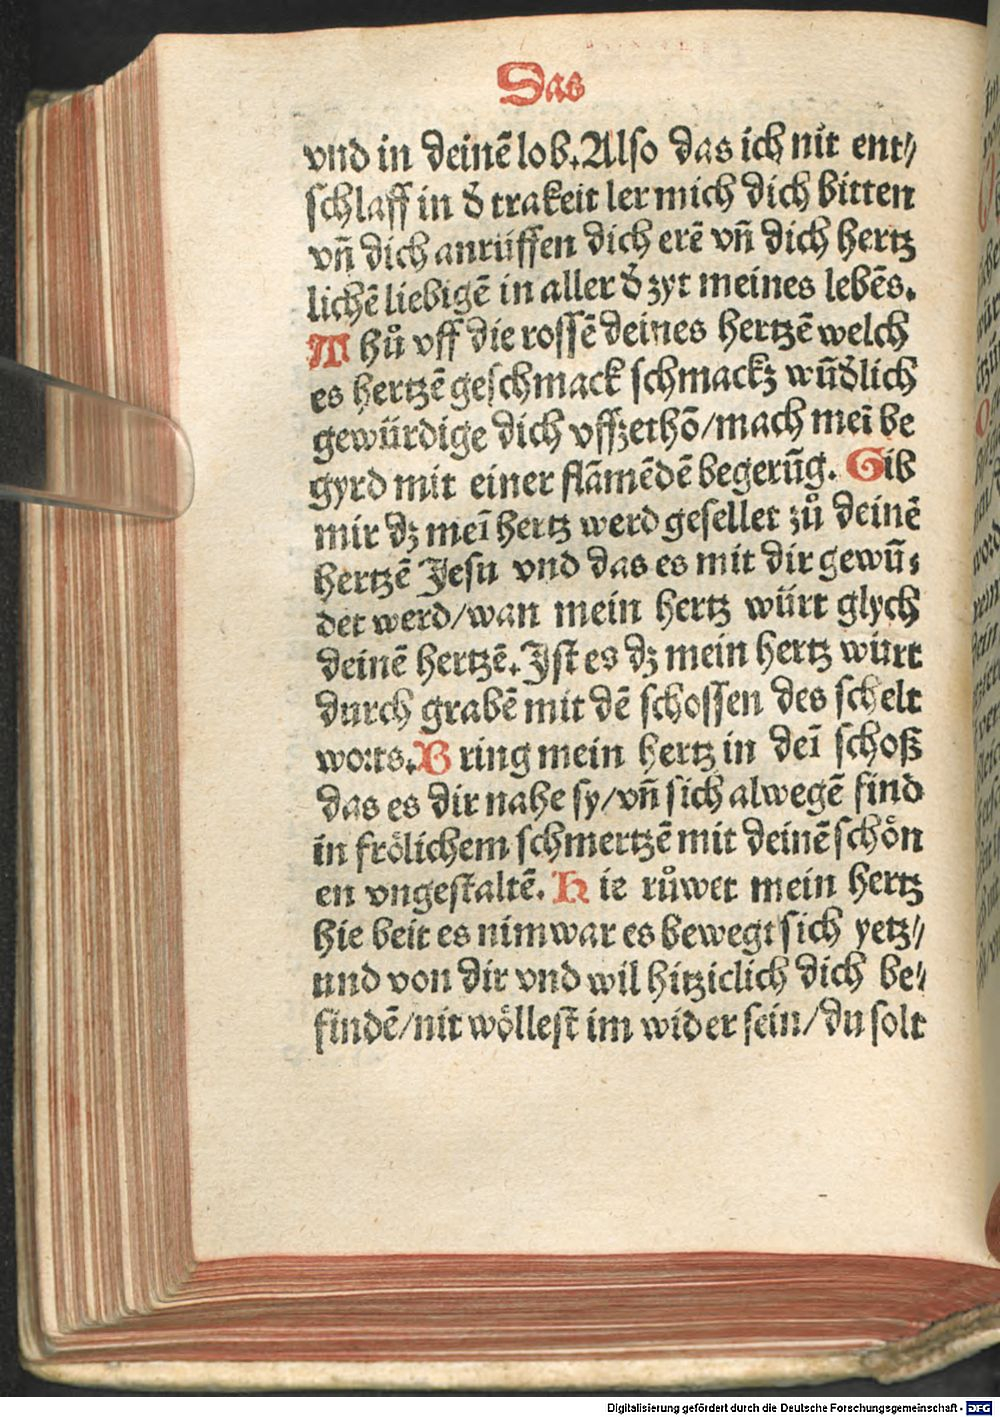 Das
vnd in deinē lob. Also das ich nit ent⸗
schlaff in d̕ trakeit ler mich dich bitten
vn̄ dich anrüffen dich erē vn̄ dich hertz
lichē liebigē in aller d̕ zyt meines lebēs.
Thů vff die rossē deines hertzē welch
es hertzē geschmack schmackꝫ wūd̕lich
gewürdige dich vffzethō/mach meī be
gyrd mit einer flāmēdē begerūg. Gib
mir dꝫ meī hertz werd gesellet zů deinē
hertzē Jesu vnd das es mit dir gewū⸗
det werd/wan mein hertz würt glych
deinē hertzē. Jst es dꝫ mein hertz würt
durch grabē mit dē schossen des schelt
worts. Bring mein hertz in deī schoß
das es dir nahe sy/vn̄ sich alwegē find
in frölichem schmertzē mit deinē schön
en vngestaltē. Hie růwet mein hertz
hie beit es nimwar es bewegt sich yetz⸗
und von dir vnd wil hitziclich dich be⸗
findē/nit wöllest im wider sein/du solt
Digitalisierung gefördert durch die Deutsche Forschungsgemeinschaft - DFG